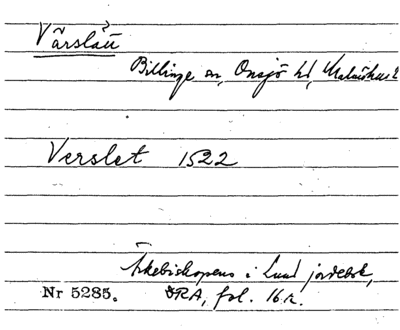 Värslätt
Billinge sn, Onsjö hd, Malmöhus l
Verslet 1522
Ärkebiskopens i Lund jordebok,
Nr 5285. DRA, fol. 16 r.